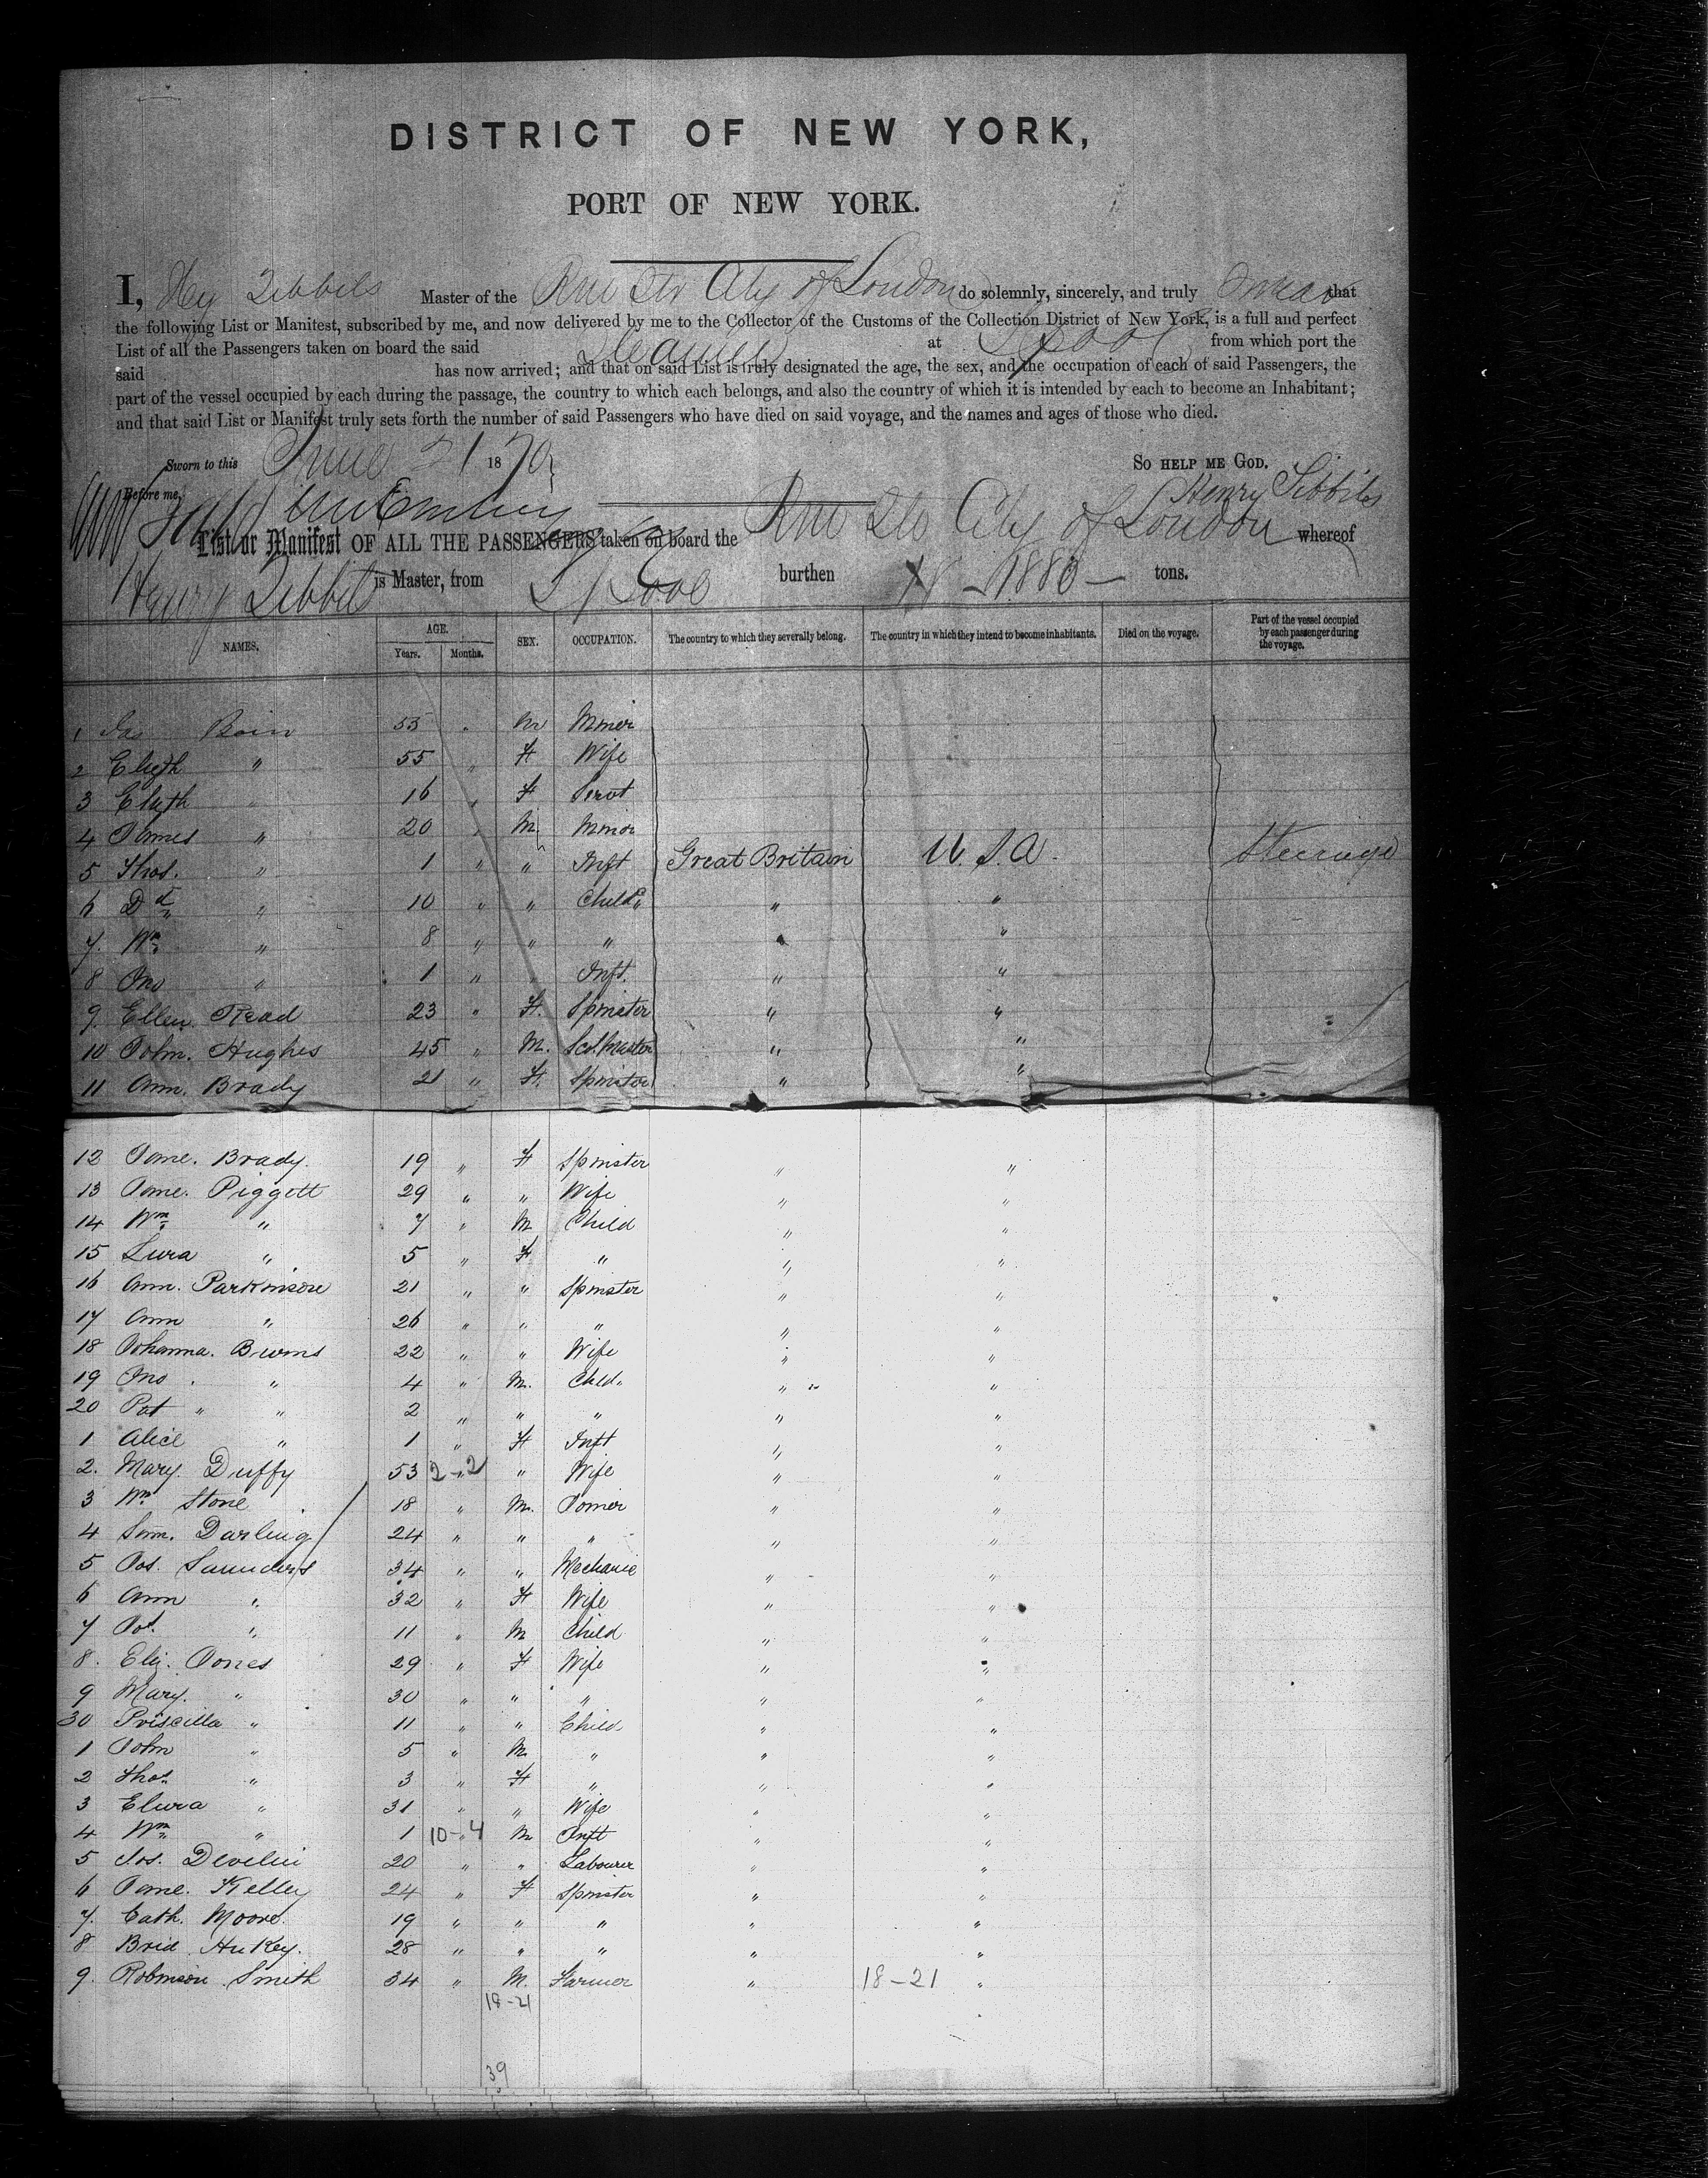 DISTRICT OF NEW YORK,
PORT OF NEW YORK.
I, Hy Tibbits Master of the Br Str City of London do solemnly, sincerely, and truly swear that
the following List or Manifest, subscribed by me, and now delivered by me to the Collector of the Customs of the Collection District of New York, is a full and perfect
List of all the Passengers taken on board the said Steamer at L'pool from which port the
said has now arrived; and that on said List is truly designated the age, the sex, and the occupation of each of said Passengers, the
part of the vessel occupied by each during the passage, the country to which each belongs, and also the country of which it is intended by each to become an Inhabitant;
and that said List or Manifest truly sets forth the number of said Passengers who have died on said voyage, and the names and ages of those who died.
Sworn to this June 21 1870 So help me God.
Before me, Henry Tibbits
List or Manifest OF ALL THE PASSENGERS taken on board the City of London whereof
Henry Tibbits is Master, from L'pool burthen 1880 tons.
NAMES. AGE. Years. Months. SEX. OCCUPATION. The country to which they severally belong. The country in which they intend to become inhabitants. Died on the voyage. Part of the vessel occupied by each passenger during the voyage.
1 Jas Bain 55 " M Miner
2 Elizth " 55 " F Wife
3 Elizth " 16 " F Servt
4 James " 20 " M. Minor
5 Thos. " 1 " " Inft Great Britain U.S.A. Steerage
6 Dd " 10 " " Child " "
7. Wm " 8 " " " " "
8 Jno " 1 " Inft. " "
9. Ellen Read 23 " F. Spinster " "
10 John. Hughes 45 " M. Scl. Master " "
11 Ann. Brady 21 " F. Spinster " "
12 Jane. Brady. 19 " F Spinster " "
13 Jane. Piggott 29 " " Wife " "
14 Wm " 7 " M Child " "
15 Lura " 5 " F " " "
16 Ann. Parkinson 21 " " Spinster " "
17 Ann " 26 " " " " "
18 Johanna. Burns 22 " " Wife " "
19 Jno. " 4 " M. Child. " "
20 Pat " " 2 " " " " "
1 Alice " 1 " F Inft " "
2. Mary. Duffy 53 2-2 " Wife " "
3 Wm Stone 18 " M. Joiner " "
4 Sam. Darling 24 " " " " "
5 Jos. Saunders 34 " " Mechanic " "
6 Ann " 32 " F Wife " "
7 Jos. " 11 " M Child " "
8. Eliz. Jones 29 " F Wife " "
9 Mary. " 30 " " " " "
30 Priscilla " 11 " " Child " "
1 John " 5 " M " " "
2 Thos " 3 " F " " "
3 Elura " 31 " " Wife " "
4 Wm " 1 10-4 M Inft " "
5 Jos. Develin 20 " " Labourer " "
6 Jane. Kelley 24 " F Spinster " "
7. Cath. Moore. 19 " " " " "
8 Brid. 28 " " " " "
9. Robinson Smith 34 " M. Farmer " 18-21 "
18-21
39